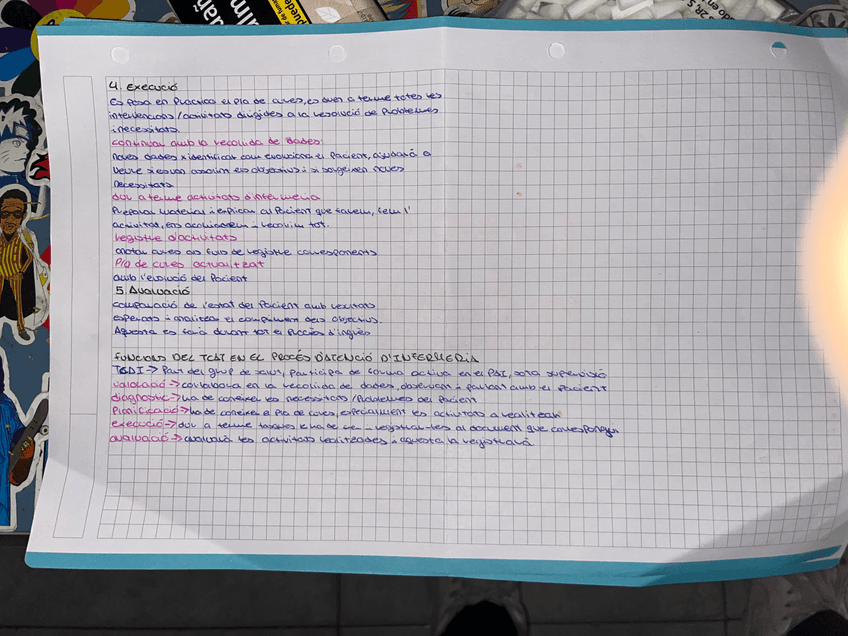 4. Execució
Es posa en pràctica el pla de cures, es duen a terme totes les
intervencions / activitats dirigides a la resolució de problemes
i necessitats.
continuar amb la recollida de dades
noves dades x identificar com evoluciona el pacient, ajudarà a
veure si es van assolint els objectius i si sorgeixen noves
necessitats
dur a terme activitats d'infermeria
Preparar material i explicar al pacient que farem, fem l'
activitat, ens acomiadem i recollim tot.
registre d'activitats
anotar cures als fulls de registre corresponents
Pla de cures actualitzat
amb l'evolució del pacient
5. Avaluació
comparació de l'estat del pacient amb resultats
esperats i analitzar el compliment dels objectius.
Aquesta es farà durant tot el procés d'ingrés
FUNCIONS DEL TCAI EN EL PROCÉS D'ATENCIÓ D'INFERMERIA
TCAI -> Part del grup de salut, participa de forma activa en el PAI, sota supervisió
valoració -> col·labora en la recollida de dades, observant i parlant amb el pacient
diagnostic -> ha de coneixer les necessitats / problemes del pacient
Planificació -> ha de coneixer el pla de cures, especialment les activitats a realitzar
execució -> dur a terme tasques i registrar-les al document que correspongui
avaluació -> avaluarà les activitats realitzades i aquesta la registrarà